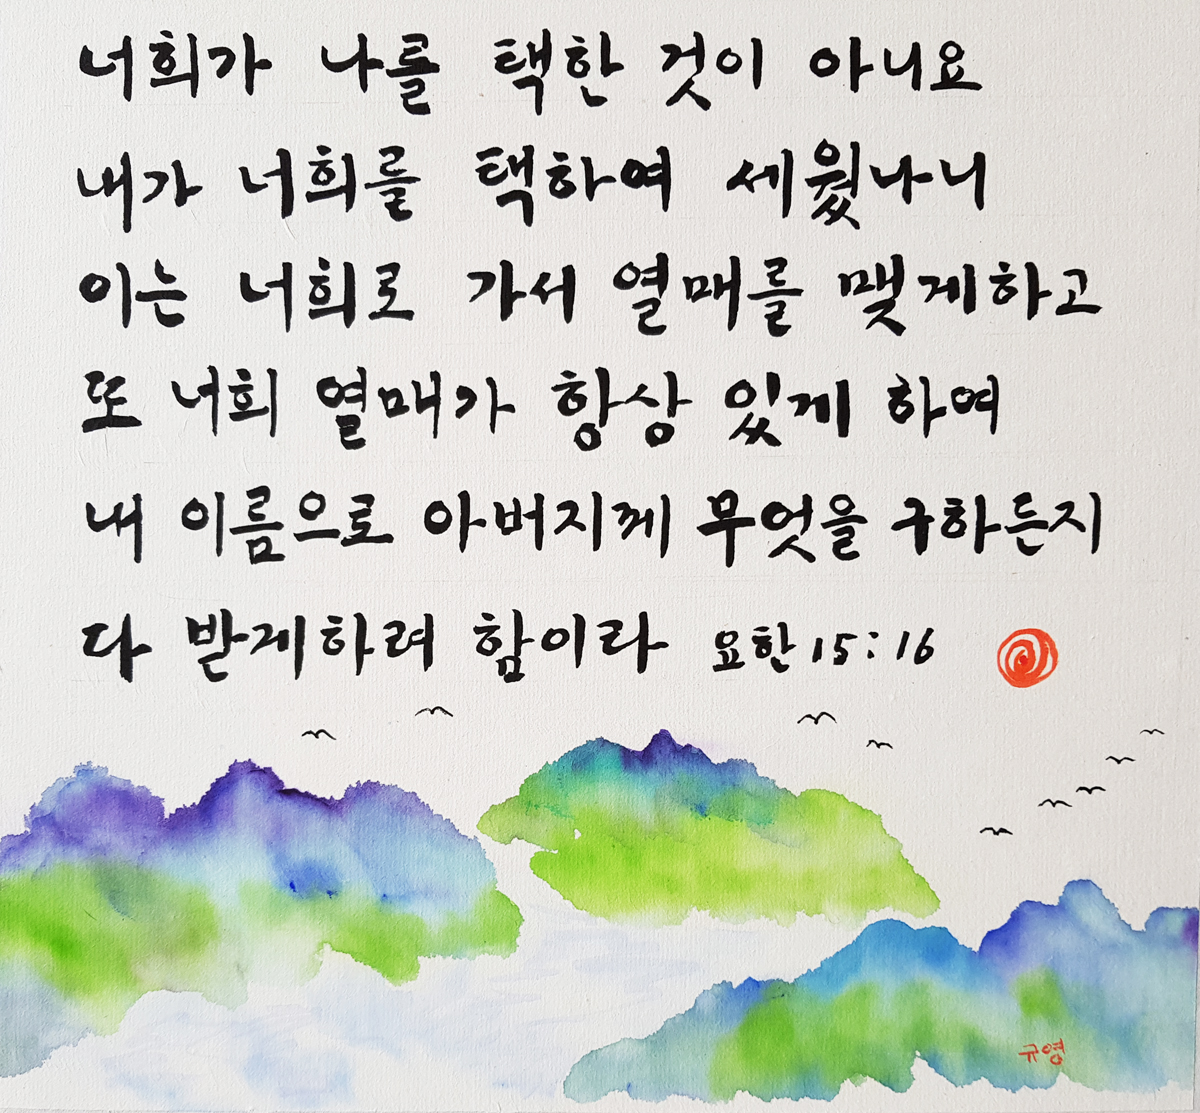 너희가 나를 택한 것이 아니요
내가 너희를 택하여 세웠나니
이는 너희로 가서 열매를 맺게하고
또 너희 열매가 항상 있게 하여
내 이름으로 아버지께 무엇을 구하든지
다 받게하려 함이라 요한 15:16
규영